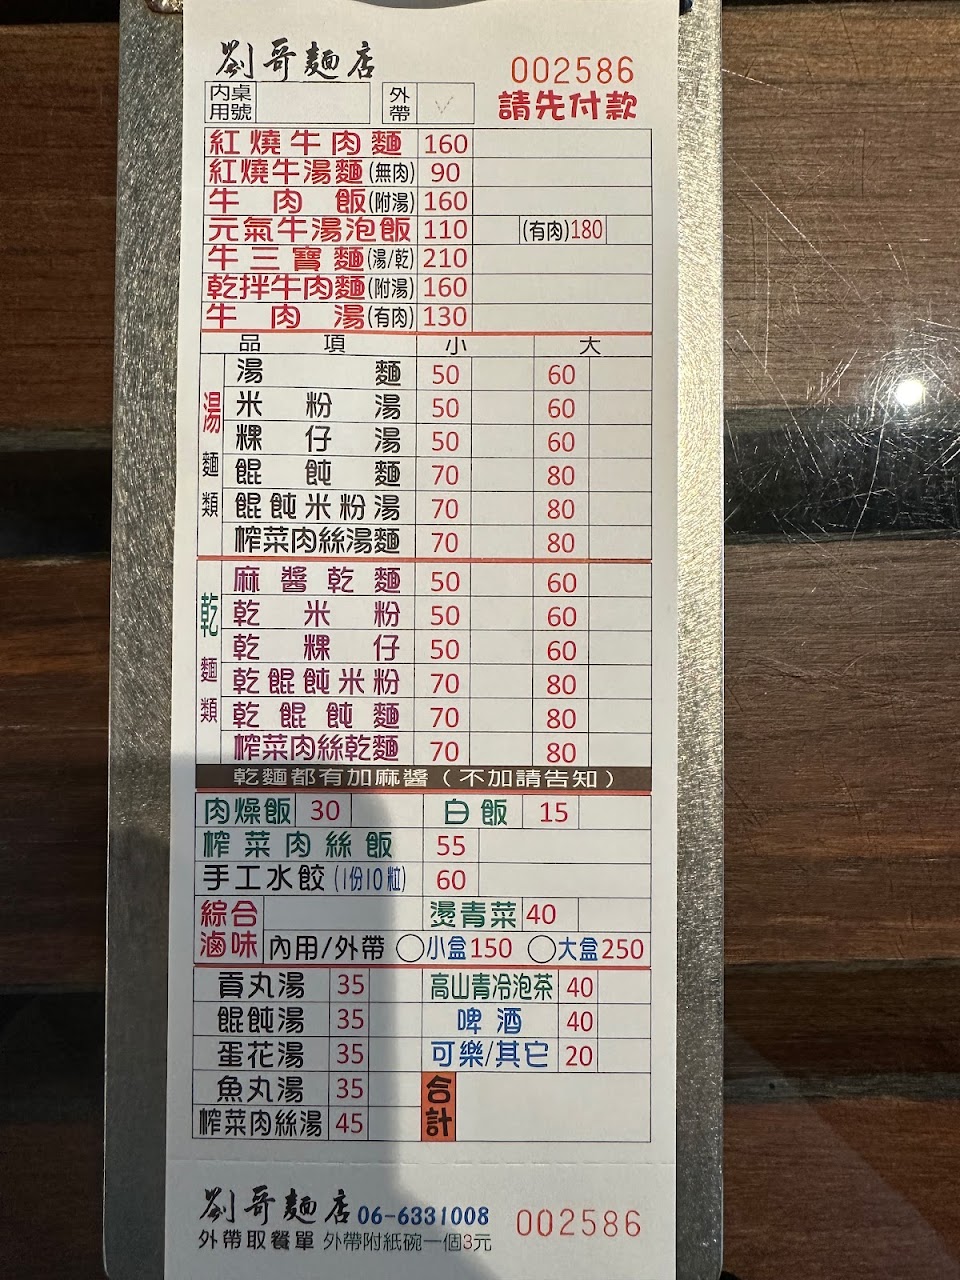 劉哥麵店 002586
內用 桌號 外帶 ✓ 請先付款
紅燒牛肉麵 160
紅燒牛湯麵(無肉) 90
牛肉飯(附湯) 160
元氣牛湯泡飯 110 (有肉)180
牛三寶麵(湯/乾) 210
乾拌牛肉麵(附湯) 160
牛肉湯(有肉) 130
品項 小 大
湯麵類
湯麵 50 60
米粉湯 50 60
粿仔湯 50 60
餛飩麵 70 80
餛飩米粉湯 70 80
榨菜肉絲湯麵 70 80
乾麵類
麻醬乾麵 50 60
乾米粉 50 60
乾粿仔 50 60
乾餛飩米粉 70 80
乾餛飩麵 70 80
榨菜肉絲乾麵 70 80
乾麵都有加麻醬(不加請告知)
肉燥飯 30 白飯 15
榨菜肉絲飯 55
手工水餃(1份10粒) 60
綜合滷味 燙青菜 40
內用/外帶 ○小盒150 ○大盒250
貢丸湯 35 高山青冷泡茶 40
餛飩湯 35 啤酒 40
蛋花湯 35 可樂/其它 20
魚丸湯 35 合計
榨菜肉絲湯 45
劉哥麵店 06-6331008 002586
外帶取餐單 外帶附紙碗一個3元